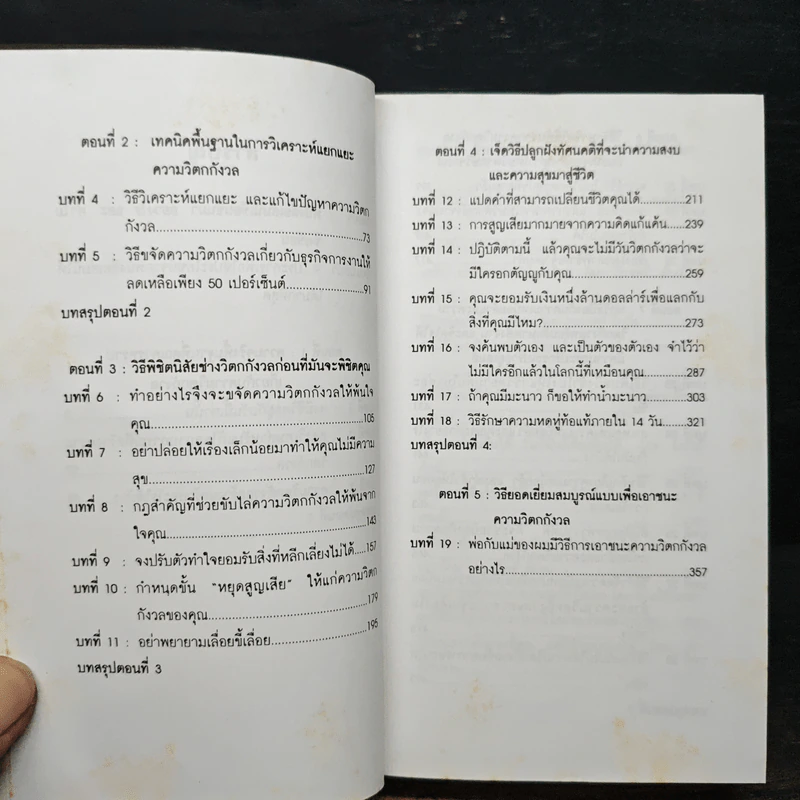 ตอนที่ 2 : เทคนิคพื้นฐานในการวิเคราะห์แยกแยะ
ความวิตกกังวล
บทที่ 4 : วิธีวิเคราะห์แยกแยะ และแก้ไขปัญหาความวิตก
กังวล....................................................73
บทที่ 5 : วิธีขจัดความวิตกกังวลเกี่ยวกับธุรกิจการงานให้
ลดเหลือเพียง 50 เปอร์เซ็นต์....................91
บทสรุปตอนที่ 2
ตอนที่ 3 : วิธีพิชิตนิสัยช่างวิตกกังวลก่อนที่มันจะพิชิตคุณ
บทที่ 6 : ทำอย่างไรจึงจะขจัดความวิตกกังวลให้พ้นใจ
คุณ....................................................105
บทที่ 7 : อย่าปล่อยให้เรื่องเล็กน้อยมาทำให้คุณไม่มีความ
สุข....................................................127
บทที่ 8 : กฎสำคัญที่ช่วยขับไล่ความวิตกกังวลให้พ้นจาก
ใจคุณ................................................143
บทที่ 9 : จงปรับตัวทำใจยอมรับสิ่งที่หลีกเลี่ยงไม่ได้.....157
บทที่ 10 : กำหนดขั้น “หยุดสูญเสีย” ให้แก่ความวิตก
กังวลของคุณ......................................179
บทที่ 11 : อย่าพยายามเลื่อยขี้เลื่อย....................195
บทสรุปตอนที่ 3
ตอนที่ 4 : เจ็ดวิธีปลูกฝังทัศนคติที่จะนำความสงบ
และความสุขมาสู่ชีวิต
บทที่ 12 : แปดคำที่สามารถเปลี่ยนชีวิตคุณได้.............211
บทที่ 13 : การสูญเสียมากมายจากความคิดแก้แค้น.....239
บทที่ 14 : ปฏิบัติตามนี้ แล้วคุณจะไม่มีวันวิตกกังวลว่าจะ
มีใครอกตัญญูกับคุณ............................259
บทที่ 15 : คุณจะยอมรับเงินหนึ่งล้านดอลล่าร์เพื่อแลกกับ
สิ่งที่คุณมีไหม?....................................273
บทที่ 16 : จงค้นพบตัวเอง และเป็นตัวของตัวเอง จำไว้ว่า
ไม่มีใครอีกแล้วในโลกนี้ที่เหมือนคุณ...........287
บทที่ 17 : ถ้าคุณมีมะนาว ก็ขอให้ทำน้ำมะนาว.........303
บทที่ 18 : วิธีรักษาความหดหู่ท้อแท้ภายใน 14 วัน......321
บทสรุปตอนที่ 4:
ตอนที่ 5 : วิธียอดเยี่ยมสมบูรณ์แบบเพื่อเอาชนะ
ความวิตกกังวล
บทที่ 19 : พ่อกับแม่ของผมมีวิธีการเอาชนะความวิตกกังวล
อย่างไร................................................357